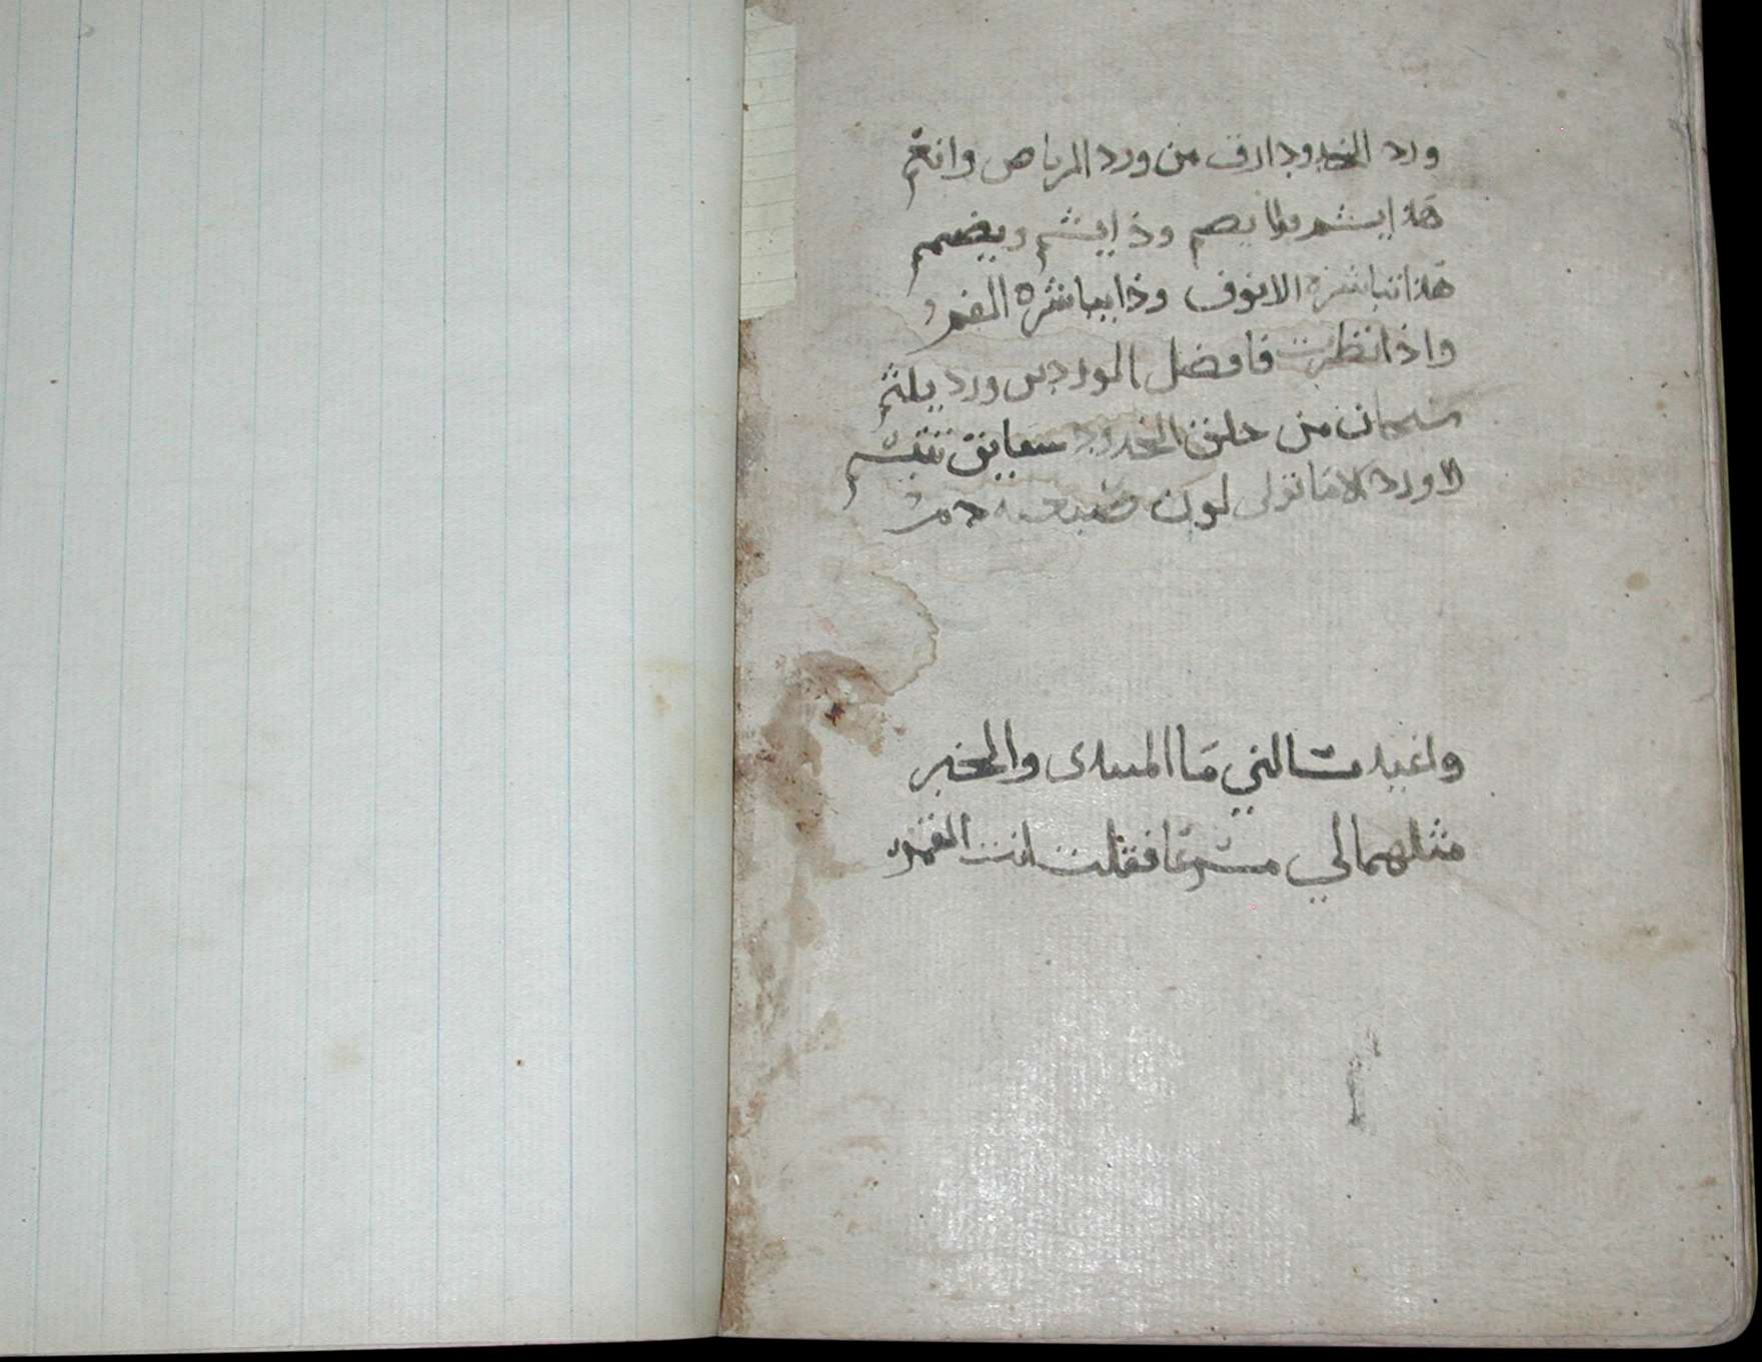 ورد الخدود ارق من ورد الرياض وانعم
هذا يشم ولا يضم وذا يشم ويضمم
هذا تباشره الانوف وذا يباشره الفم
واذا نظرت فافضل الوردين ورد يلثم
سبحان من خلق الخدود شقايق تتنسم
لا ورد الا ما تولى لون صبغه دم
واغيد سالني ما المبتدى والخبر
مثلهما لي مسرعا فقلت انت القمر